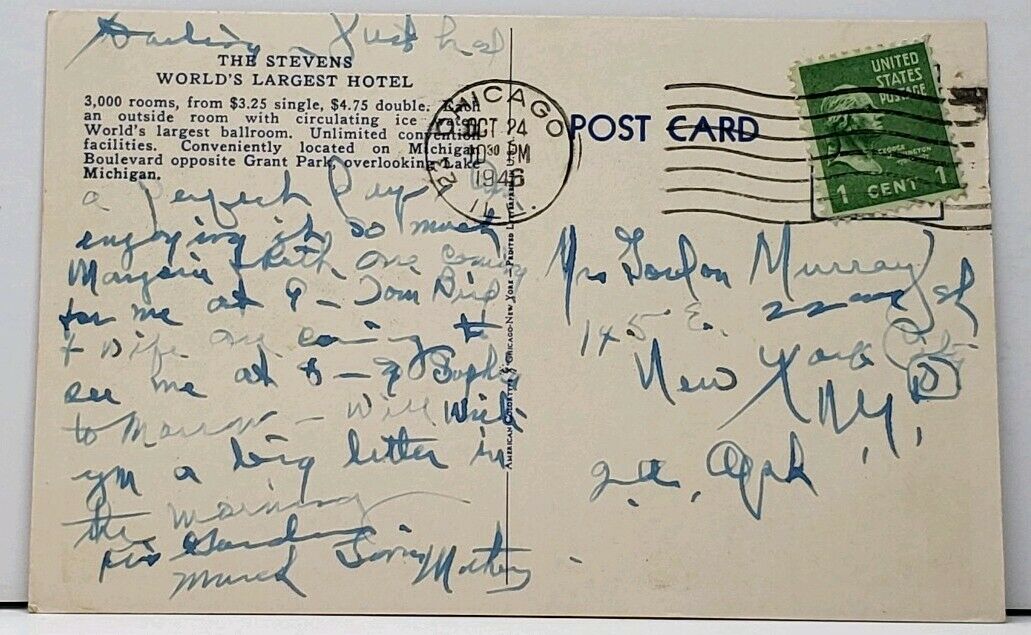 Darling – Just had
THE STEVENS
WORLD'S LARGEST HOTEL
3,000 rooms, from $3.25 single, $4.75 double. Each
an outside room with circulating ice water.
World's largest ballroom. Unlimited convention
facilities. Conveniently located on Michigan
Boulevard opposite Grant Park, overlooking Lake
Michigan.
a perfect
enjoying it so much
are coming
for me at 9 – Tom
+ wife are coming to
see me at 8 –
to Morrow – Will Write
you a big letter in
the morning
Kiss Gordon
much Love Mother
AMERICAN COLORTYPE CHICAGO-NEW YORK – PRINTED
CHICAGO
OCT 24
10 30 PM
1946
ILL.
POST CARD
UNITED
STATES
POSTAGE
GEORGE
WASHINGTON
1 CENT 1
Mrs Gordon Murray
145 E. 22nd St
New York City
N.Y.
2.a. Apt